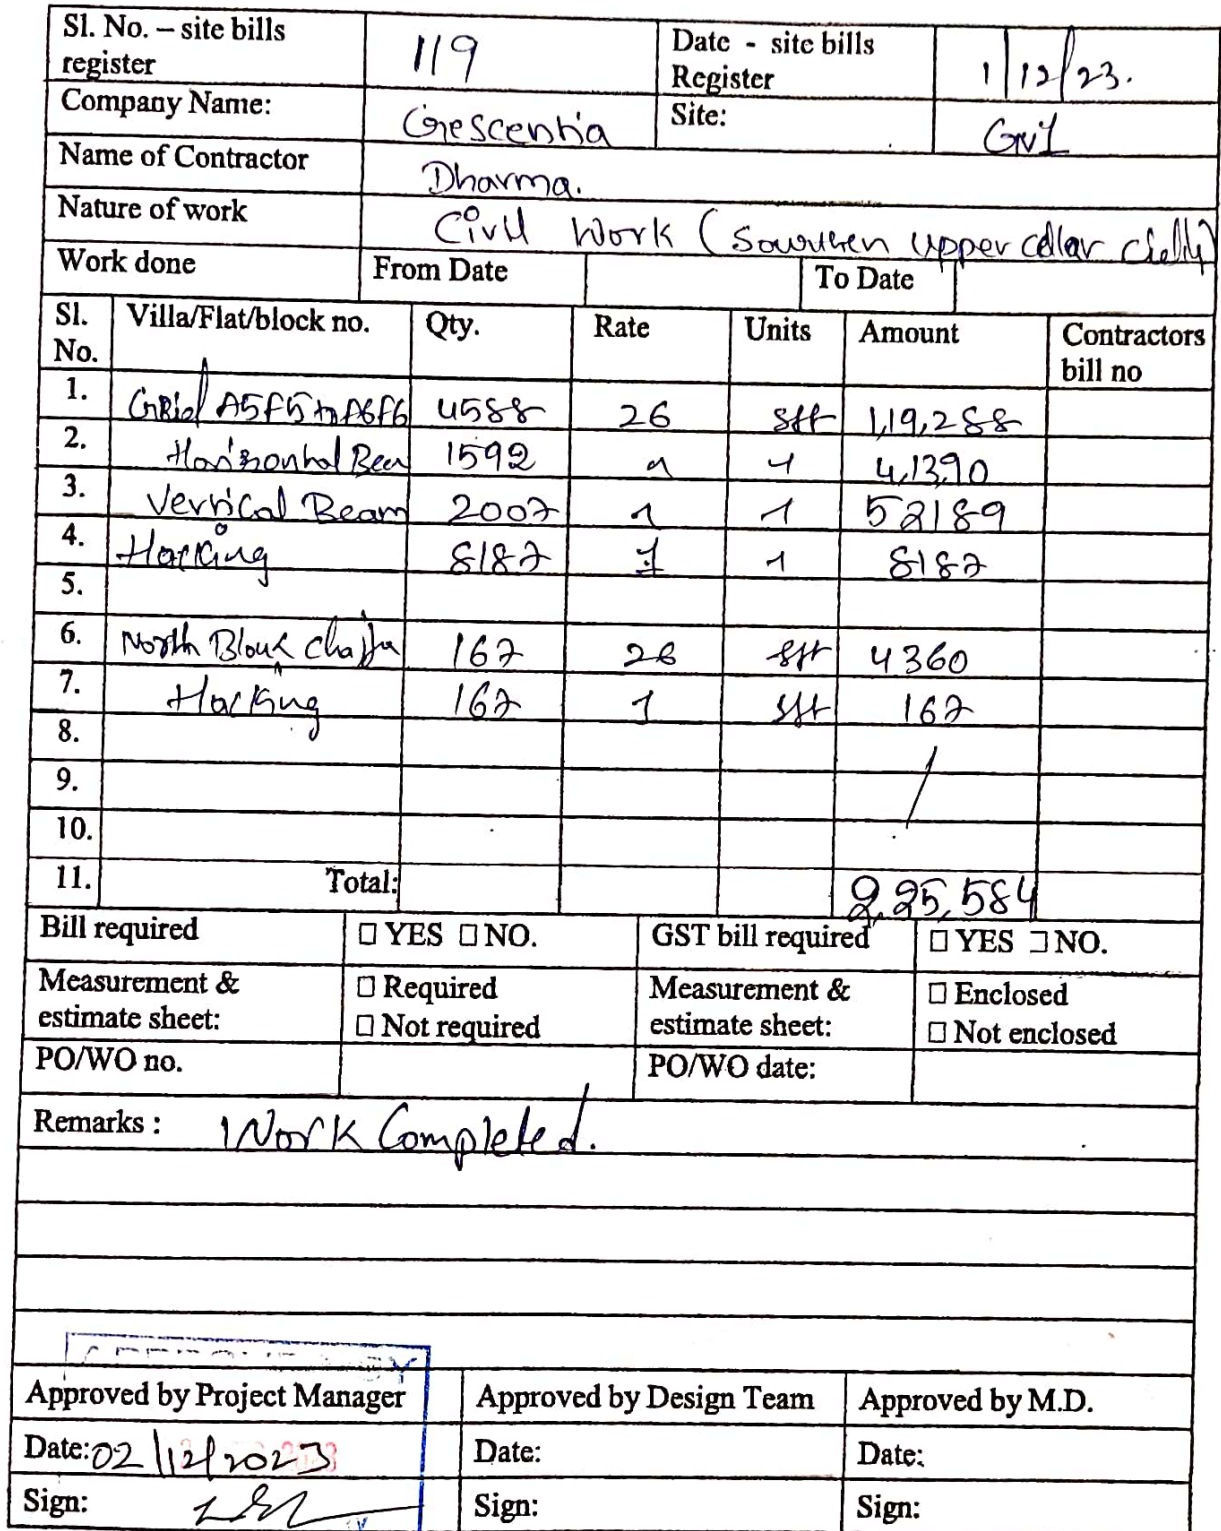 Sl. No. – site bills register 119 Date - site bills Register 1/12/23.
Company Name: Crescentia Site: GV1
Name of Contractor Dharma.
Nature of work Civil Work ( Southen upper cellar
Work done From Date To Date
Sl. No. Villa/Flat/block no. Qty. Rate Units Amount Contractors bill no
1. Grid A5F5 to A6F6 4588 26 sft 1,19,288
2. Horizonhal Bea 1592 " " 41390
3. Vertical Beam 2007 " " 52189
4. Hacking 8187 1 " 8187
5.
6. North Block chajja 167 26 sft 4360
7. Hacking 167 1 sft 167
8.
9.
10.
11. Total: 2,25,584
Bill required □ YES □ NO. GST bill required □ YES □ NO.
Measurement & estimate sheet: □ Required □ Not required Measurement & estimate sheet: □ Enclosed □ Not enclosed
PO/WO no. PO/WO date:
Remarks : Work Completed.
Approved by Project Manager Approved by Design Team Approved by M.D.
Date: 02/12/2023 Date: Date:
Sign: Sign: Sign: